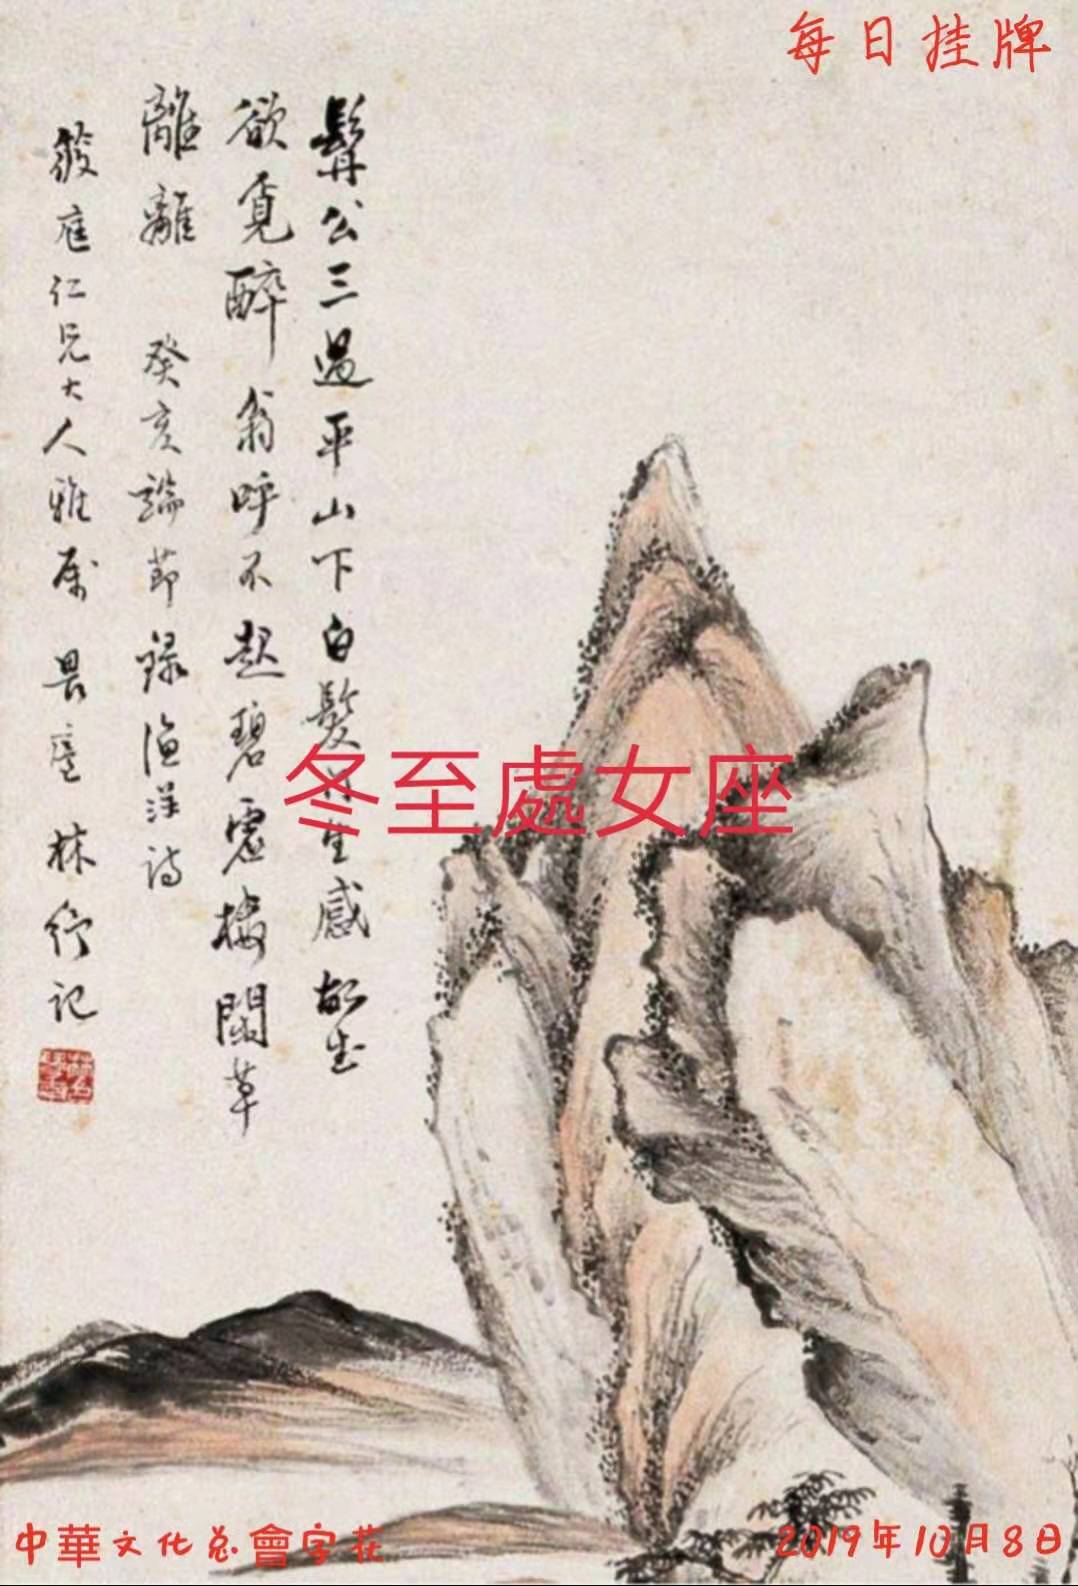 每日挂牌
髯公三過平山下白髮門生感故
欲覓醉翁呼不起碧雲樓閣草
離離 癸亥端節錄漁洋詩
仁兄大人雅屬 畏廬 林紓記
冬至處女座
中華文化总會字花
2019年10月8日